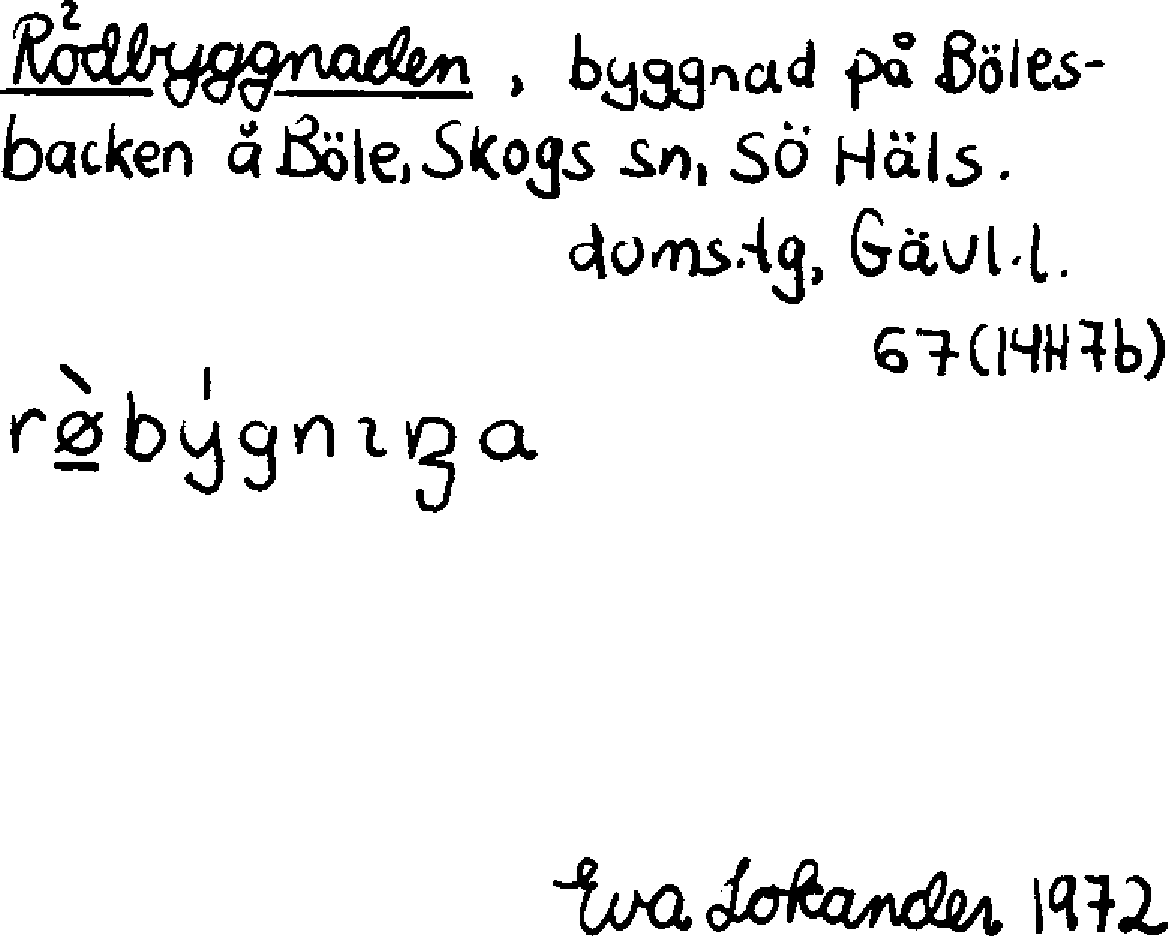 Rödbyggnaden, byggnad på Böles-
backen å Böle, Skogs sn, SÖ Häls.
doms.tg, Gävl.l.
67(14H7b)
rø̳̀býgnıŋa
Eva Lokander 1972